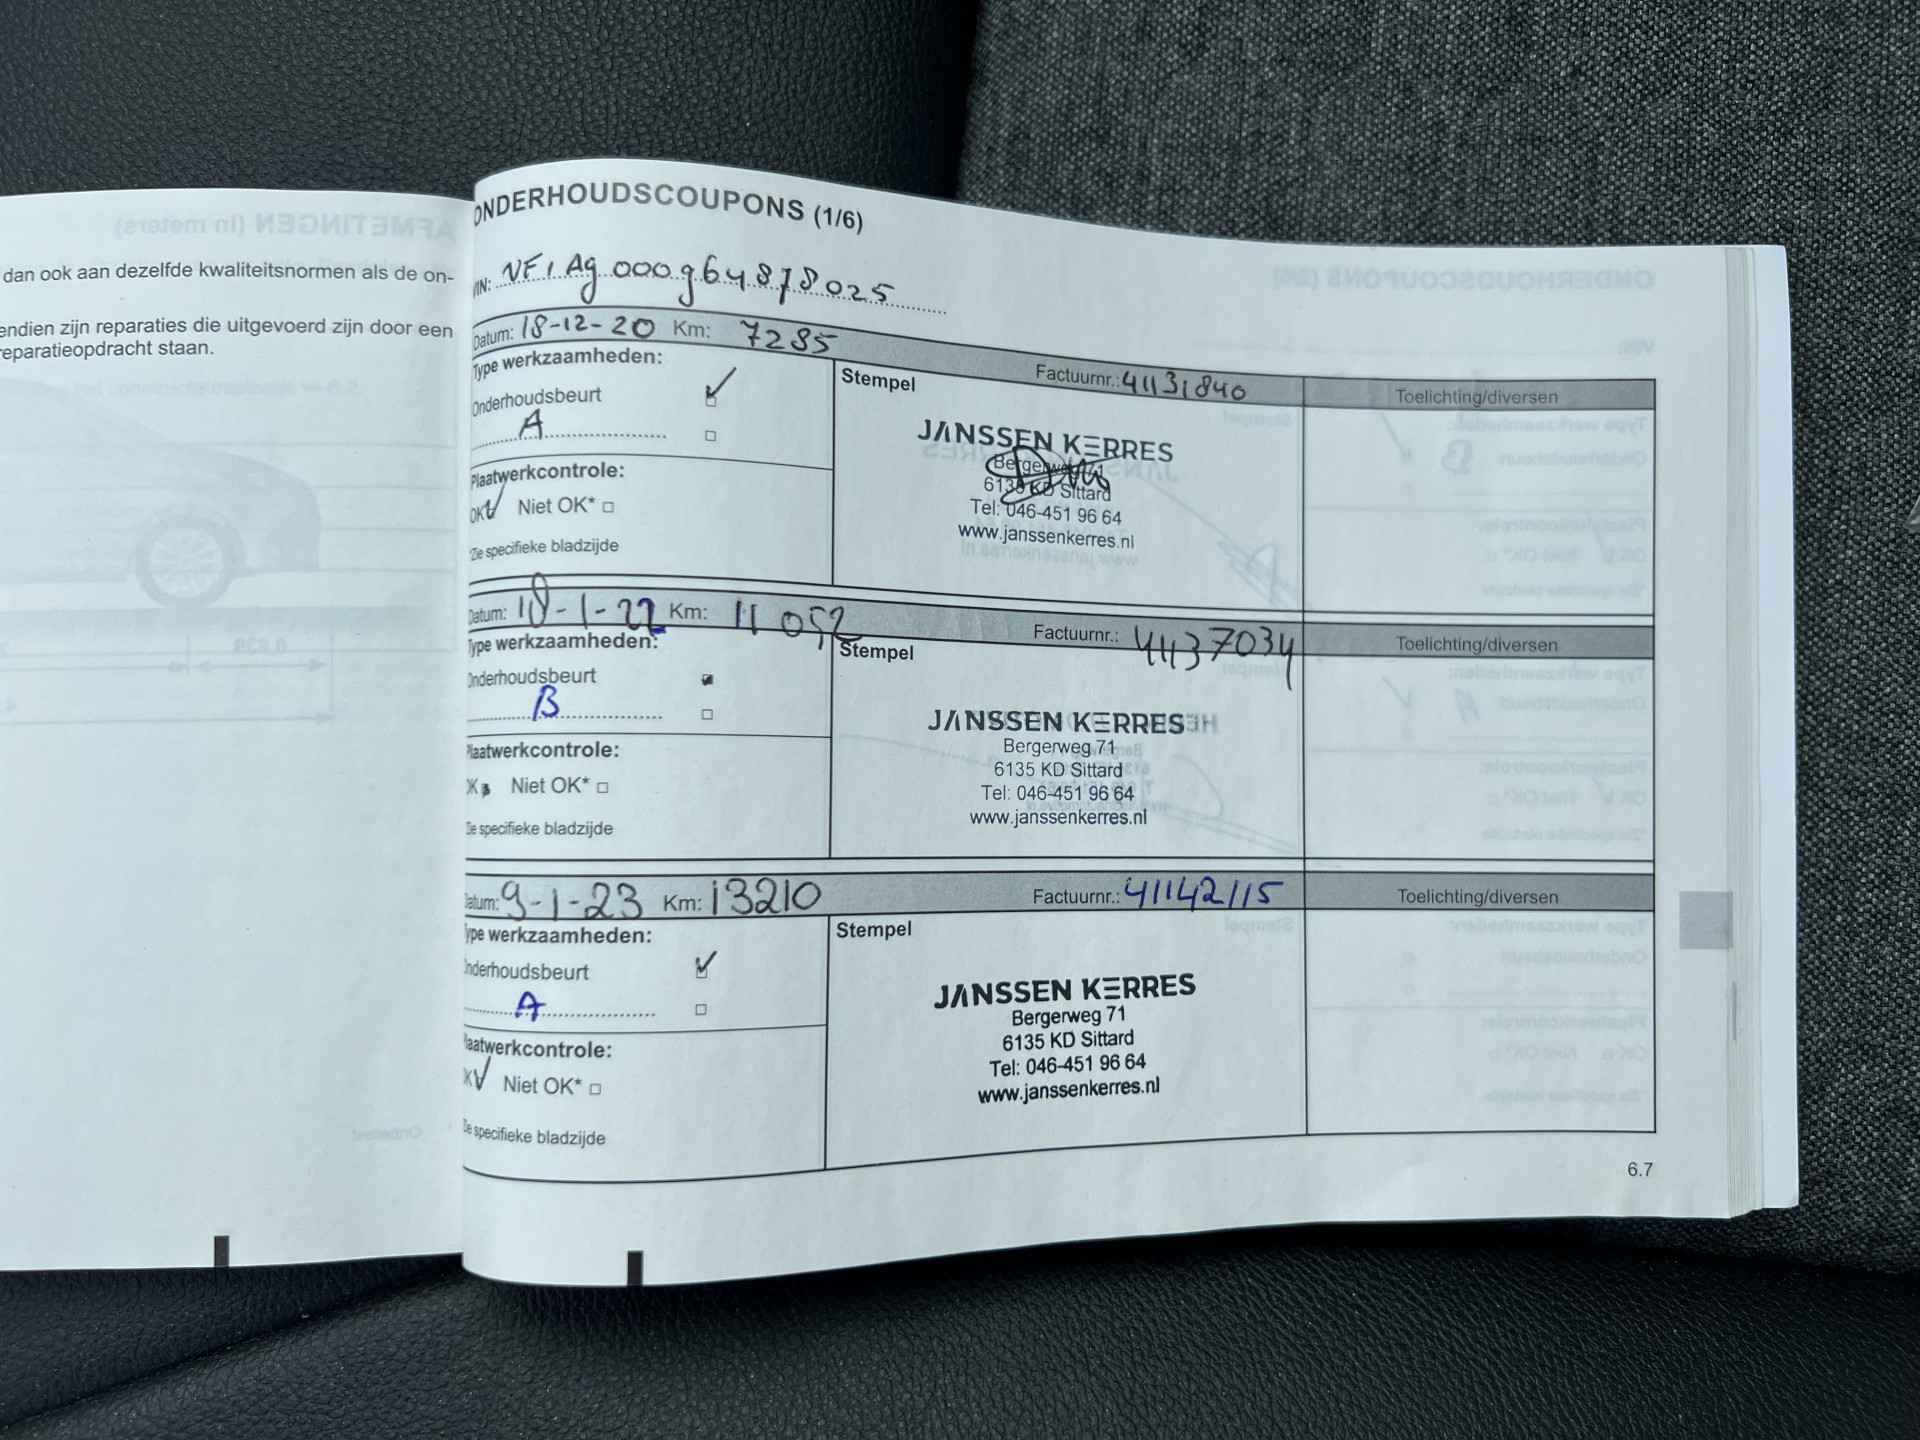 dan ook aan dezelfde kwaliteitsnormen als de on-
endien zijn reparaties die uitgevoerd zijn door een
reparatieopdracht staan.
ONDERHOUDSCOUPONS (1/6)
VIN: VF1Ag000g64878025
Datum: 18-12-20 Km: 7285
Factuurnr.: 41131840
Toelichting/diversen
Type werkzaamheden:
Stempel
Onderhoudsbeurt
A
Plaatwerkcontrole:
OK Niet OK*
*Zie specifieke bladzijde
JANSSEN KERRES
Bergerweg 71
6135 KD Sittard
Tel: 046-451 96 64
www.janssenkerres.nl
Datum: 18-1-22 Km: 11 052
Factuurnr.: 41137034
Toelichting/diversen
Type werkzaamheden:
Stempel
Onderhoudsbeurt
B
Plaatwerkcontrole:
OK Niet OK*
Zie specifieke bladzijde
JANSSEN KERRES
Bergerweg 71
6135 KD Sittard
Tel: 046-451 96 64
www.janssenkerres.nl
Datum: 9-1-23 Km: 13210
Factuurnr.: 41142115
Toelichting/diversen
Type werkzaamheden:
Stempel
Onderhoudsbeurt
A
Plaatwerkcontrole:
OK Niet OK*
Zie specifieke bladzijde
JANSSEN KERRES
Bergerweg 71
6135 KD Sittard
Tel: 046-451 96 64
www.janssenkerres.nl
6.7